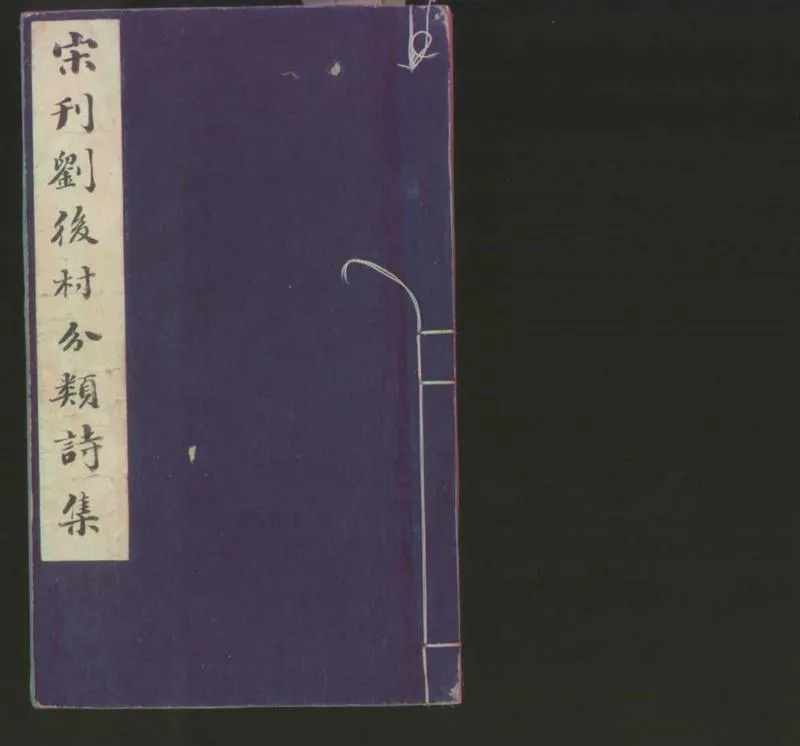 宋刋劉後村分類詩集